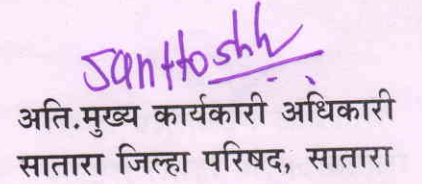 Santtoshh
अति.मुख्य कार्यकारी अधिकारी
सातारा जिल्हा परिषद, सातारा